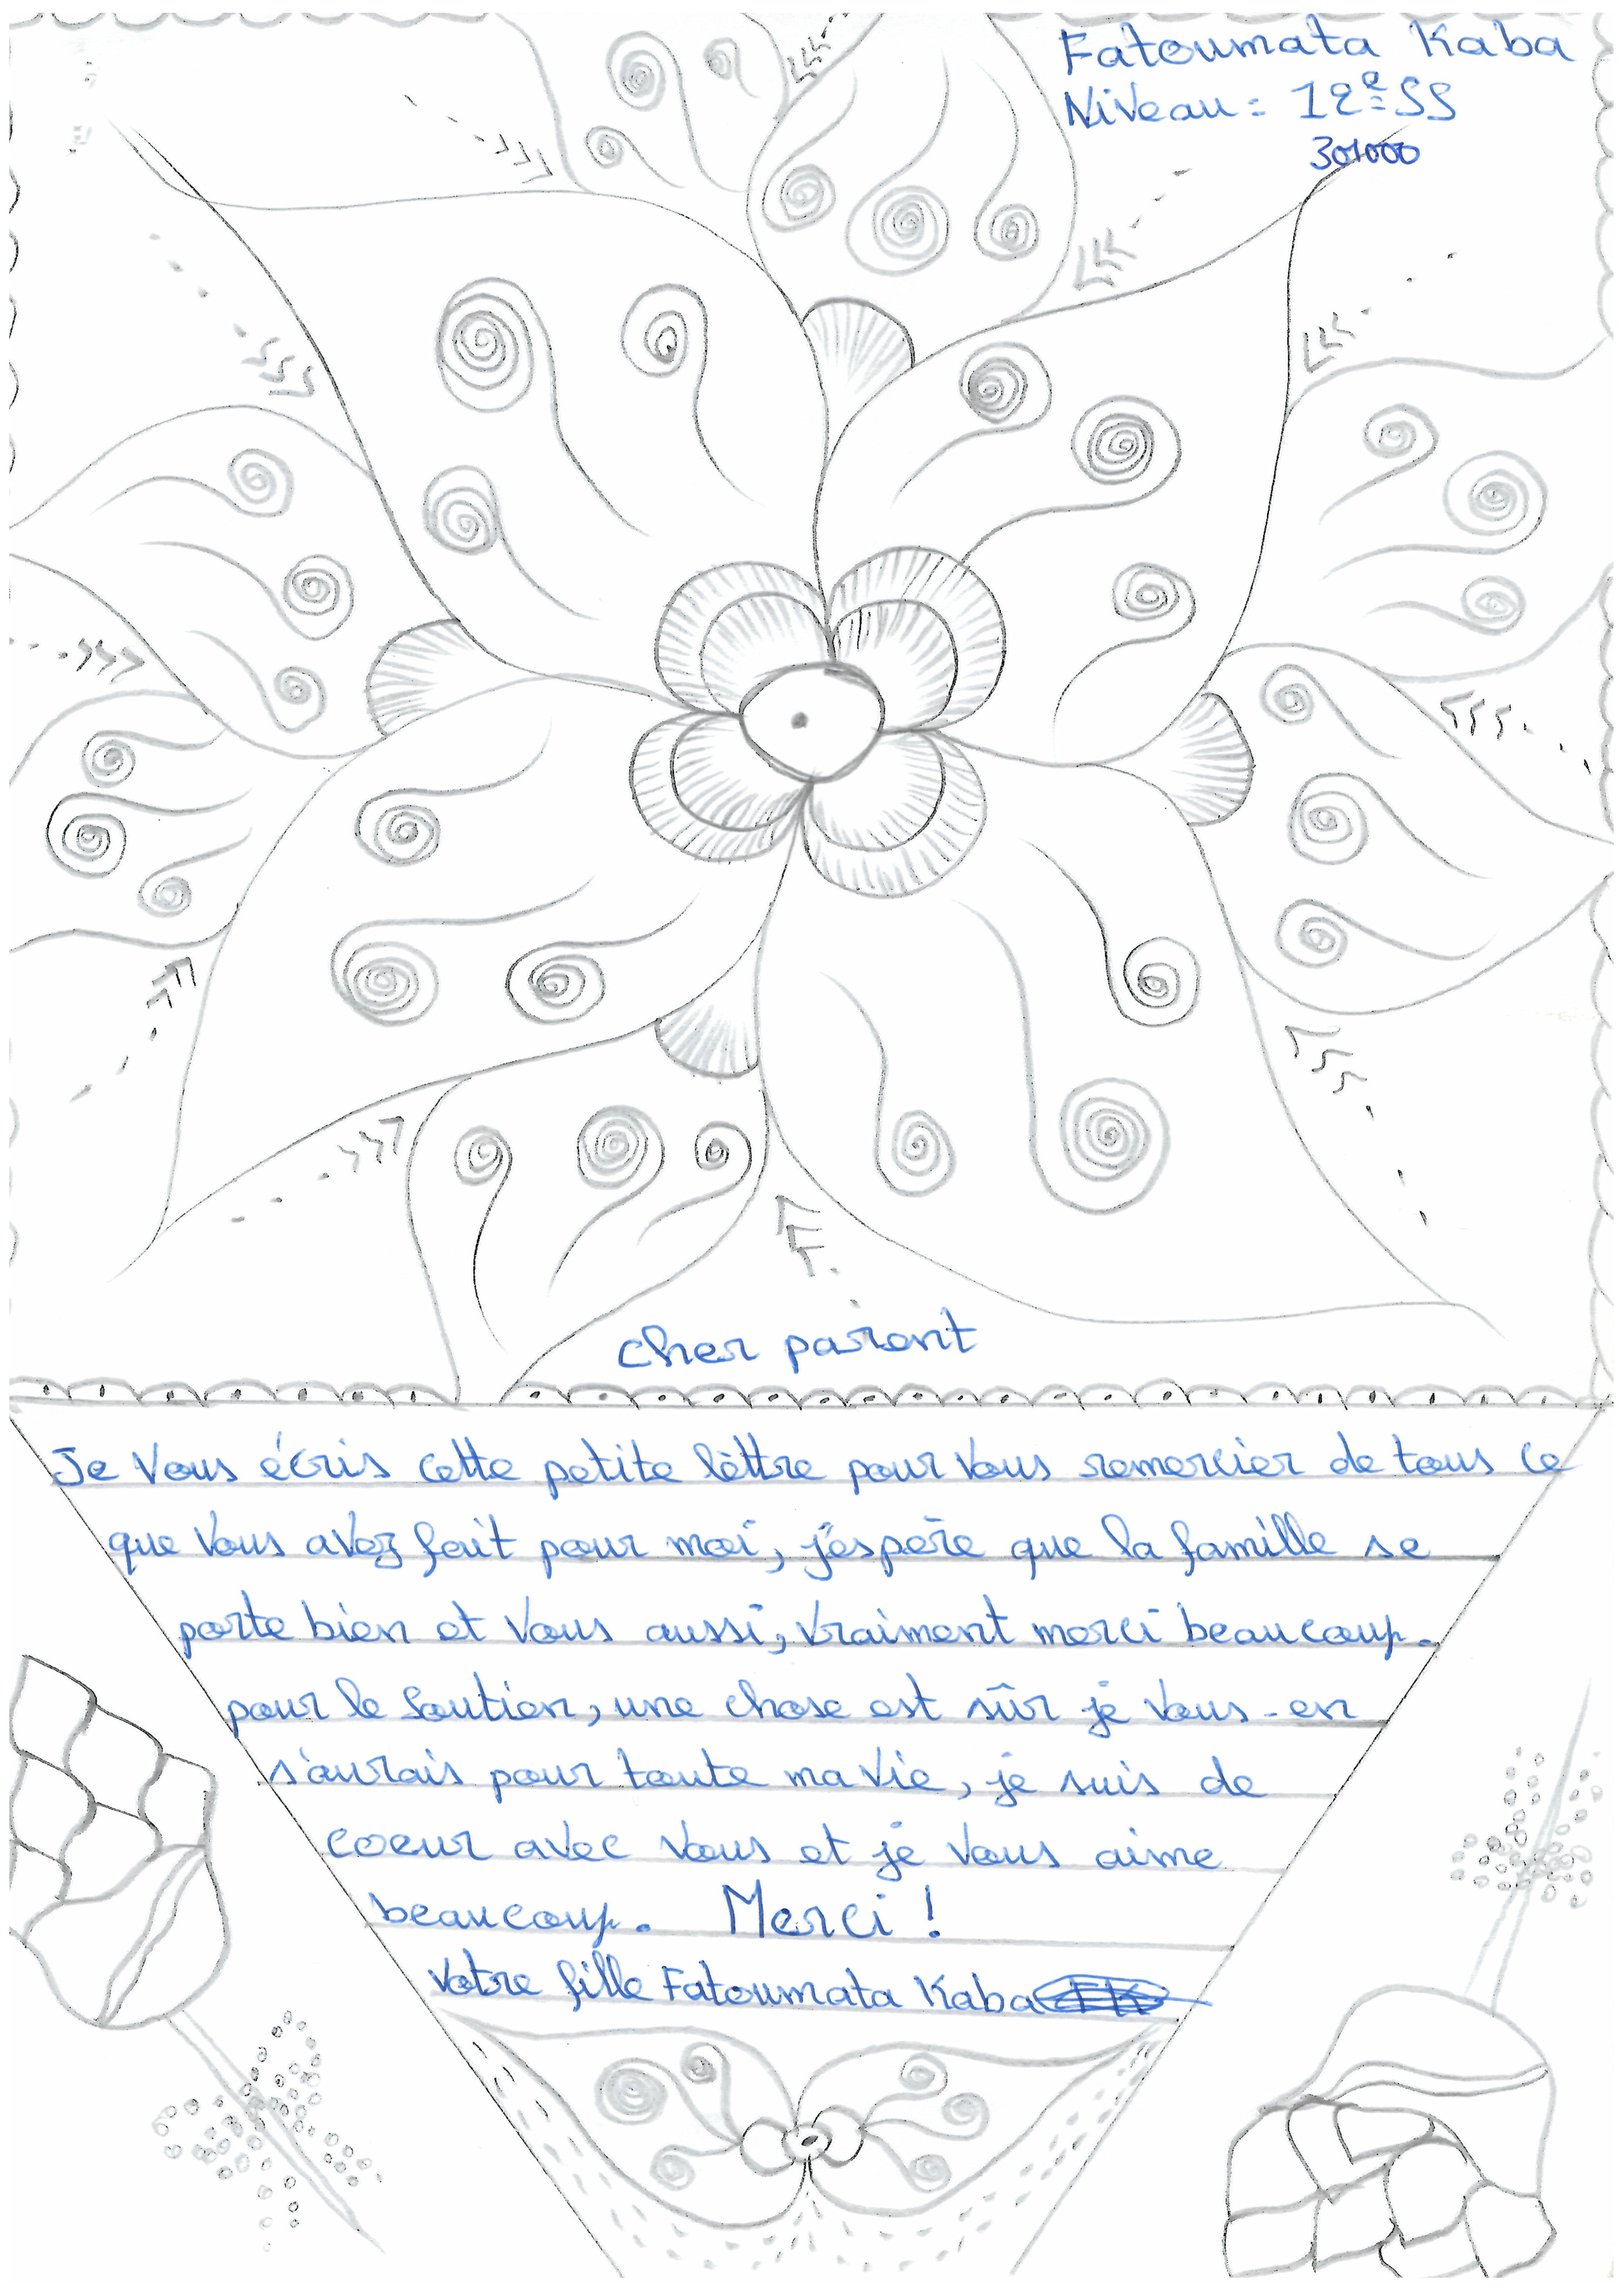 Fatoumata Kaba
Niveau = 12e SS
301000
cher parent
Je vous écris cette petite lèttre pour vous remercier de tous ce
que vous avez fait pour moi, j'éspère que la famille se
porte bien et vous aussi, vraiment merci beaucoup.
pour le soutien, une chose est sûr je vous-en
s'aurais pour toute ma vie, je suis de
coeur avec vous et je vous aime
beaucoup. Merci !
votre fille Fatoumata Kaba